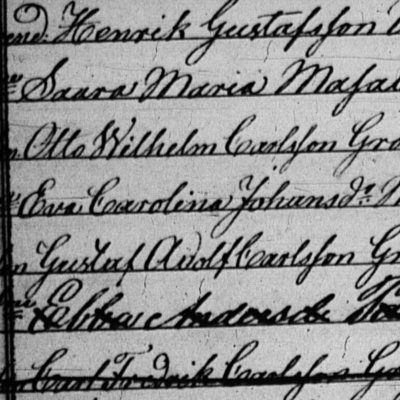 Henrik Gustafsson
Saara Maria
Otto Wilhelm Carlsson
Eva Carolina Johansdr
Gustaf Adolf Carlsson
Ebba Andersdr
Carl Fredrik Carlsson